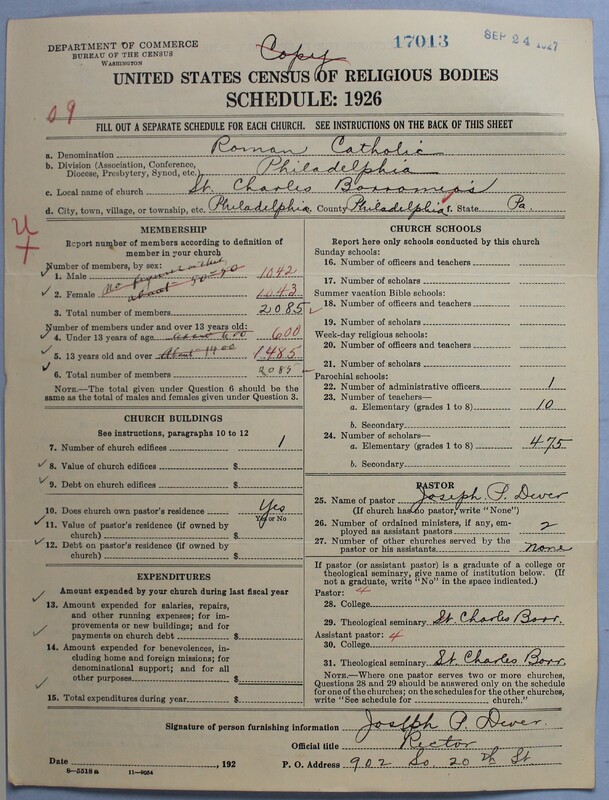 DEPARTMENT OF COMMERCE
BUREAU OF THE CENSUS
WASHINGTON
Copy
17013
SEP 24 1927
UNITED STATES CENSUS OF RELIGIOUS BODIES
SCHEDULE: 1926
09
FILL OUT A SEPARATE SCHEDULE FOR EACH CHURCH. SEE INSTRUCTIONS ON THE BACK OF THIS SHEET
a. Denomination Roman Catholic
b. Division (Association, Conference, Diocese, Presbytery, Synod, etc.) Philadelphia
c. Local name of church St. Charles Borromeo's
d. City, town, village, or township, etc. Philadelphia County Philadelphia State Pa.
MEMBERSHIP
Report number of members according to definition of
member in your church
Number of members, by sex:
1. Male 1042
2. Female about 50-50 1043
3. Total number of members 2085
Number of members under and over 13 years old:
4. Under 13 years of age about 600 600
5. 13 years old and over about 1400 1485
6. Total number of members 2085
NOTE.—The total given under Question 6 should be
same as the total of males and females given under Question 3.
CHURCH BUILDINGS
See instructions, paragraphs 10 to 12
7. Number of church edifices 1
8. Value of church edifices $
9. Debt on church edifices $
10. Does church own pastor's residence Yes
Yes or No
11. Value of pastor's residence (if owned by
church) $
12. Debt on pastor's residence (if owned by
church) $
EXPENDITURES
Amount expended by your church during last fiscal year
13. Amount expended for salaries, repairs,
and other running expenses; for im-
provements or new buildings; and for
payments on church debt $
14. Amount expended for benevolences,
including home and foreign missions; for
denominational support; and for all
other purposes $
15. Total expenditures during year $
CHURCH SCHOOLS
Report here only schools conducted by this church
Sunday schools:
16. Number of officers and teachers
17. Number of scholars
Summer vacation Bible schools:
18. Number of officers and teachers
19. Number of scholars
Week-day religious schools:
20. Number of officers and teachers
21. Number of scholars
Parochial schools:
22. Number of administrative officers 1
23. Number of teachers—
a. Elementary (grades 1 to 8) 10
b. Secondary
24. Number of scholars—
a. Elementary (grades 1 to 8) 475
b. Secondary
PASTOR
25. Name of pastor Joseph P. Dever
(If church has no pastor, write "None")
26. Number of ordained ministers, if any, em-
ployed as assistant pastors 2
27. Number of other churches served by the
pastor or his assistants none
If pastor (or assistant pastor) is a graduate of a college or
theological seminary, give name of institution below. (If
not a graduate, write "No" in the space indicated.)
Pastor: 4
28. College
29. Theological seminary St Charles Borr.
Assistant pastor: 4
30. College
31. Theological seminary St Charles Borr
NOTE.—Where one pastor serves two or more churches,
Questions 28 and 29 should be answered only on the schedule
for one of the churches; on the schedules for the other churches,
write "See schedule for church."
Signature of person furnishing information Joseph P. Dever.
Official title Rector
Date , 192 P. O. Address 902 So. 20th St
8—5518 a 11—9034